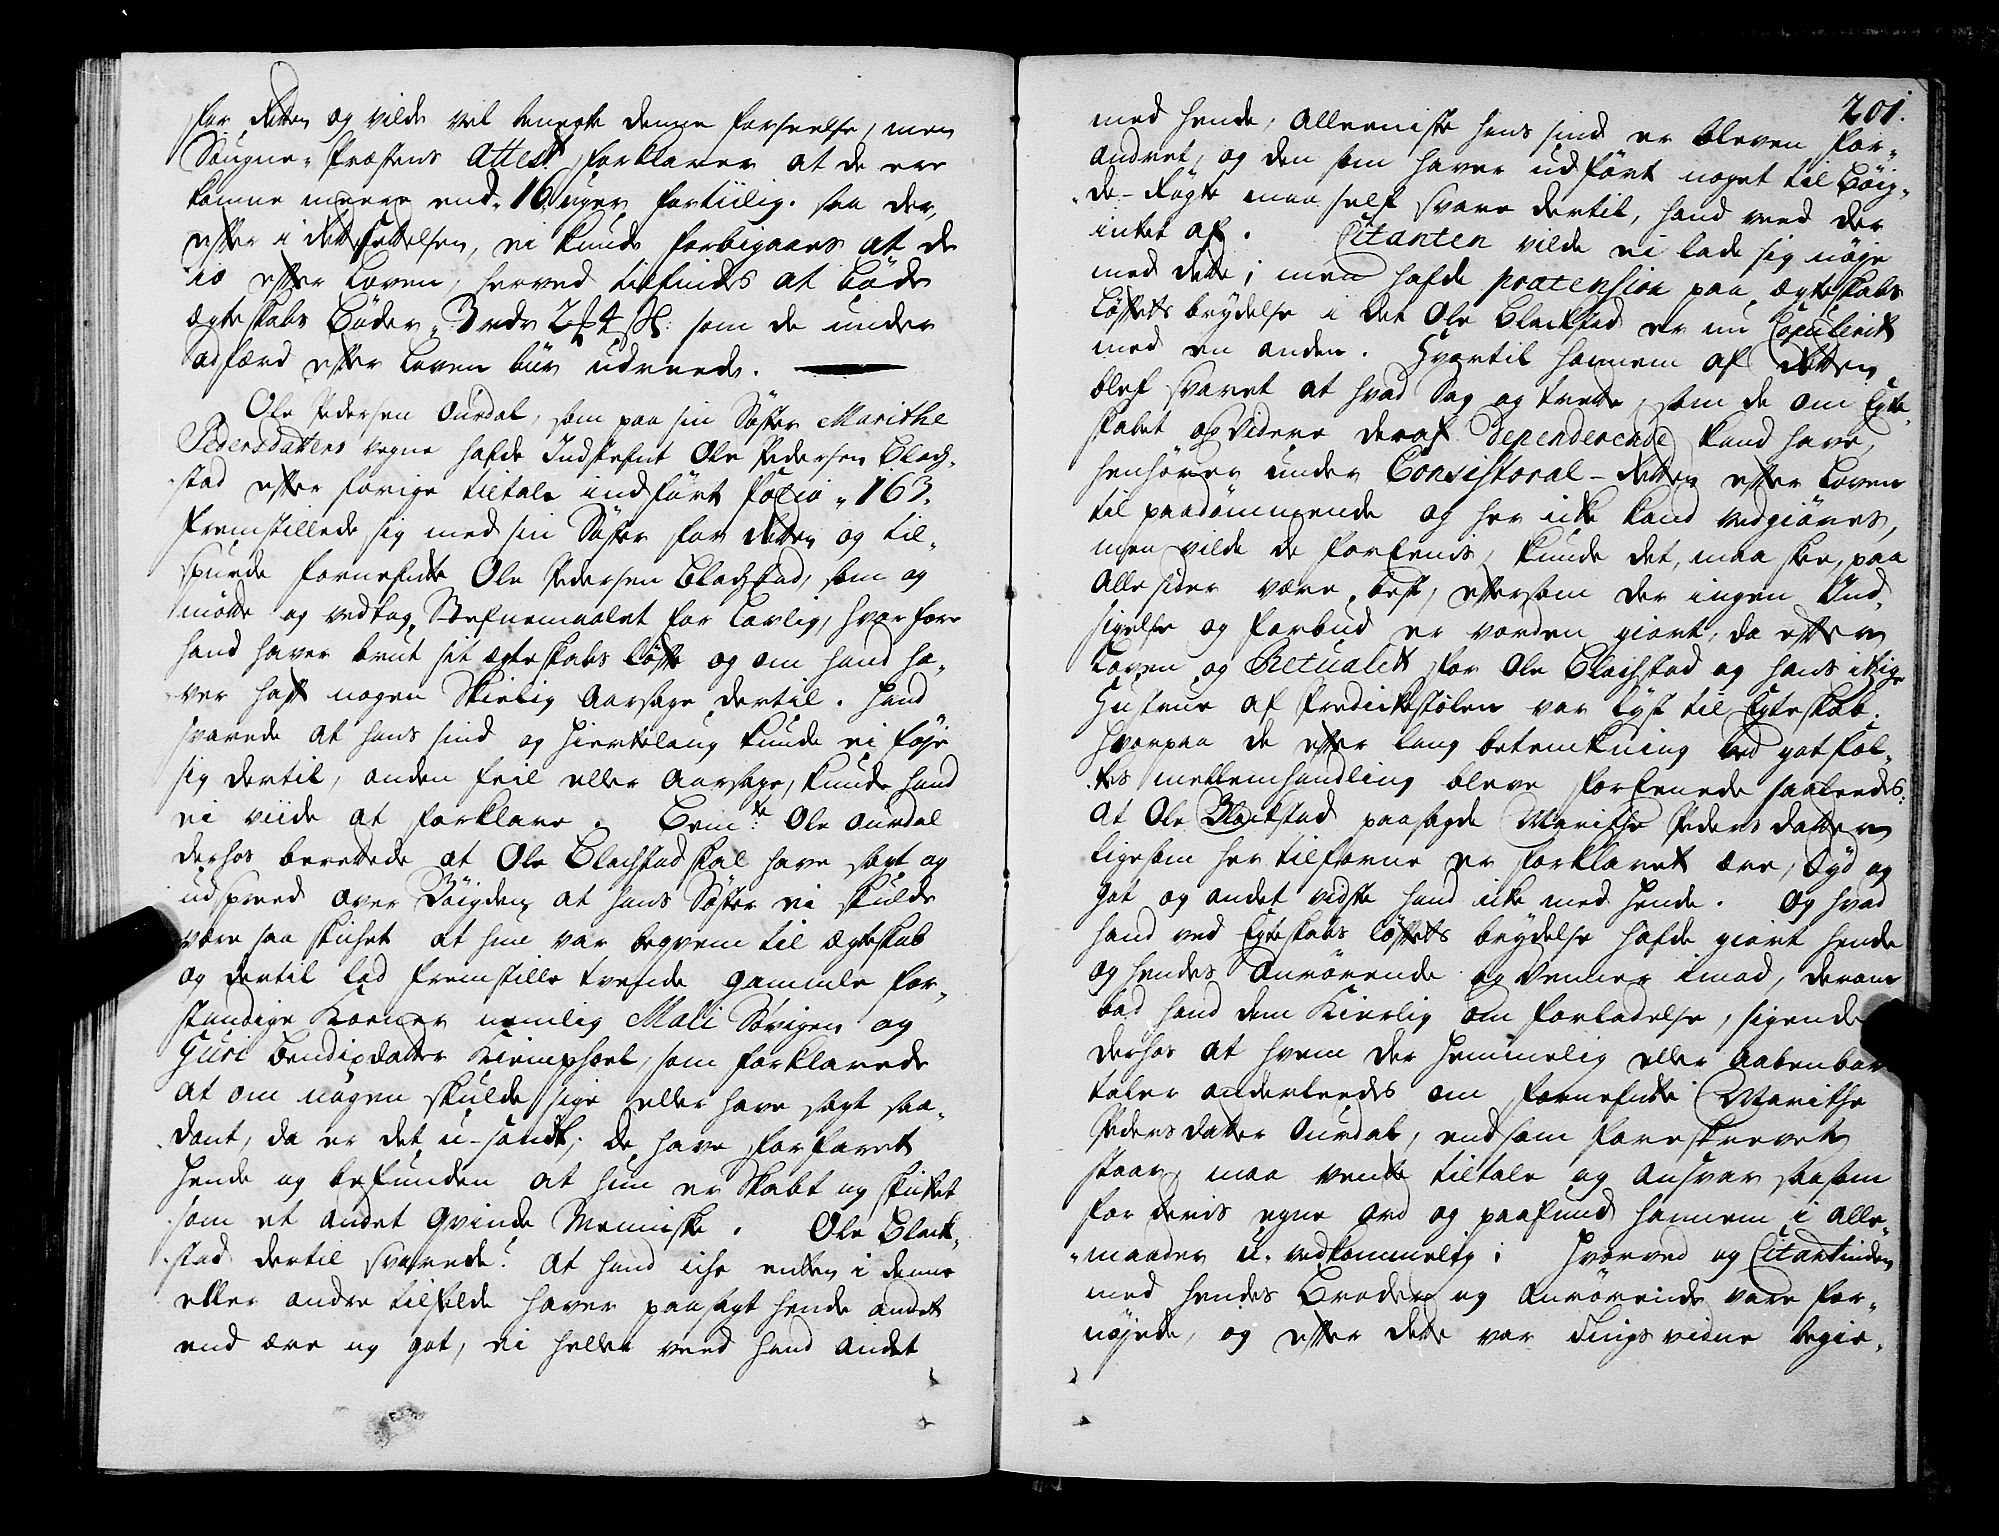 for Retten og vilde vel benegte denne forseelse, men
Sougne-Præstens Attest forklarer at de ere
komne meere end 16 uger for tiilig. saa der
efter i Rettsettelsen, ei kunde forbigaaes at de
jo efter Loven, herved tilfindes at bøde
ægteskabs Bøder 3 rdr 2 ß som de under
adfærd efter Loven bør udreede.
Ole Pedersen Ourdal, som paa sin Søster Marithe
Pedersdatters vegne hafde Indstefnt Ole Pedersen Blach-
stad efter forige tiltale indført folio 163.
fremstillede sig med sin Søster for Retten og til-
spurde fornefnte Ole Pedersen Blachstad, som og
mødte og vedtog Stefnemaalet for Lovlig, hvorfore
hand haver brut sit ægteskabs løfte og om hand ha-
ver haft nogen Skiellig Aarsage dertil. Hand
svarede at hans sind og Hiertelaug kunde ei føje
sig dertil, anden feil eller Aarsage, kunde hand
ei viide at forklare. Bem:te Ole Ourdal
derhos berettede at Ole Blachstad skal have sagt og
udspreed over Bøigden at hans Søster ei skulde
være saa skichet at hun var beqvem til ægteskab
og dertil lod fremstille tvende gamle for-
standige Koner nemlig Mali Søvigen og
Guri Bendixdatter Kiemphoel, som forklarede
at om nogen skulde sige eller have sagt saa-
dant, da er det u-sandt, de have forfaret
hende og befunden at hun er Skabt og skicket
som et andet Qvinde Menniske. Ole Black-
stad dertil svarede: At hand iche enten i denne
eller andre tilfelde haver paasagt hende andet
end ære og got, ei heller veed hand andet
201.
med hende, Alleeniste hans sind er bleven for-
andret, og den som haver udført noget til Bøig-
de-Røgte maa self svare dertil, hand veed der
intet af. Citanten vilde ei lade sig nøje
med dette, men hafde prætension paa ægteskabs
Løftets brydelse i det Ole Blackstad er nu Copulerit
med en anden. Hvortil hannem af Retten
blef svaret at hvad Sag og trette, som de om Egte-
skabet og Videre deraf dependerende kand have,
henhører under Consistoral-Retten efter Loven
til paadømmende og her icke kand vedgiøres,
men vilde de forEenis, kunde det, maa skee, paa
Alle sider være best, eftersom der ingen Ind-
sigelse og forbud er vorden giort, da efter
Loven og Retualet for Ole Blachstad og hans itzige
Hustrue af Predickestolen var lyst til Egteskab.
Hvorpaa de efter lang betenckning ved got fol-
kes mellemhandling bleve forEenede saaleedes:
At Ole Blackstad paasagde Marithe Pedersdatter
ligesom her tilforne er forklaret ære, dyd og
got og andet vidste hand icke med hende. Og hvad
hand ved Egteskabs løftets brydelse hafde giort hende
og hendes Anrørende og Venner imod, derom
bad hand dem Kierlig om forladelse, sigende
derhos at hvem der hemmelig eller Aabenbar
taler anderleedes om fornefnte Marithe
Pedersdatter Ourdal, end som foreskrevet
staar, maa vente tiltale og Ansvar saasom
for deris egne ord og paafund hannem i alle
maader u-vedkommelig; Hvorved og Citantinden
med hendes Broder og Anrørende vare for-
nøjede, og efter dette var Tingsvidne begie-